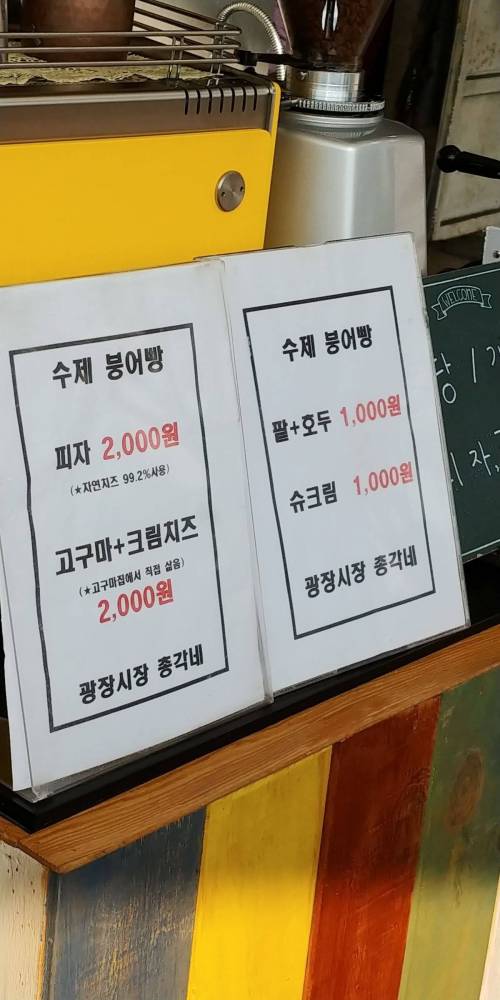 수제 붕어빵
피자 2,000원
(★자연치즈 99.2%사용)
고구마+크림치즈
(★고구마집에서 직접 삶음)
2,000원
광장시장 총각네
수제 붕어빵
팥+호두 1,000원
슈크림 1,000원
광장시장 총각네
WELCOME